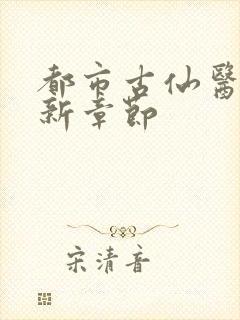 都市古仙醫
新章節
宋清音